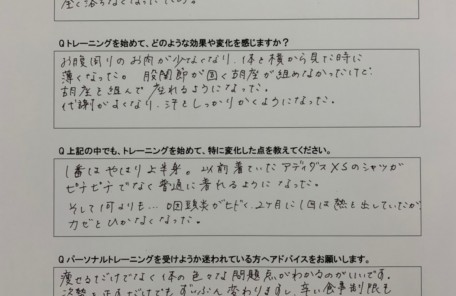 Q トレーニングを始めて、どのような効果や変化を感じますか?
お腹周りのお肉が少なくなり、体を横から見た時に
薄くなった。股関節が固く胡座が組めなかったけど
胡座を組んで座れるようになった。
代謝がよくなり、汗をしっかりかくようになった。
Q 上記の中でも、トレーニングを始めて、特に変化した点を教えてください。
1番はやはり上半身。以前着ていたアディダスXSのシャツが
ピチピチでなく普通に着れるようになった。
そして何よりも…咽頭炎がヒドく、2ヶ月に1回は熱を出していたが
カゼをひかなくなった。
Q パーソナルトレーニングを受けようか迷われている方へアドバイスをお願いします。
痩せるだけでなく体の色々な問題点がわかるのがいいです。
姿勢を正すだけでもずいぶん変わりますし、辛い食事制限も